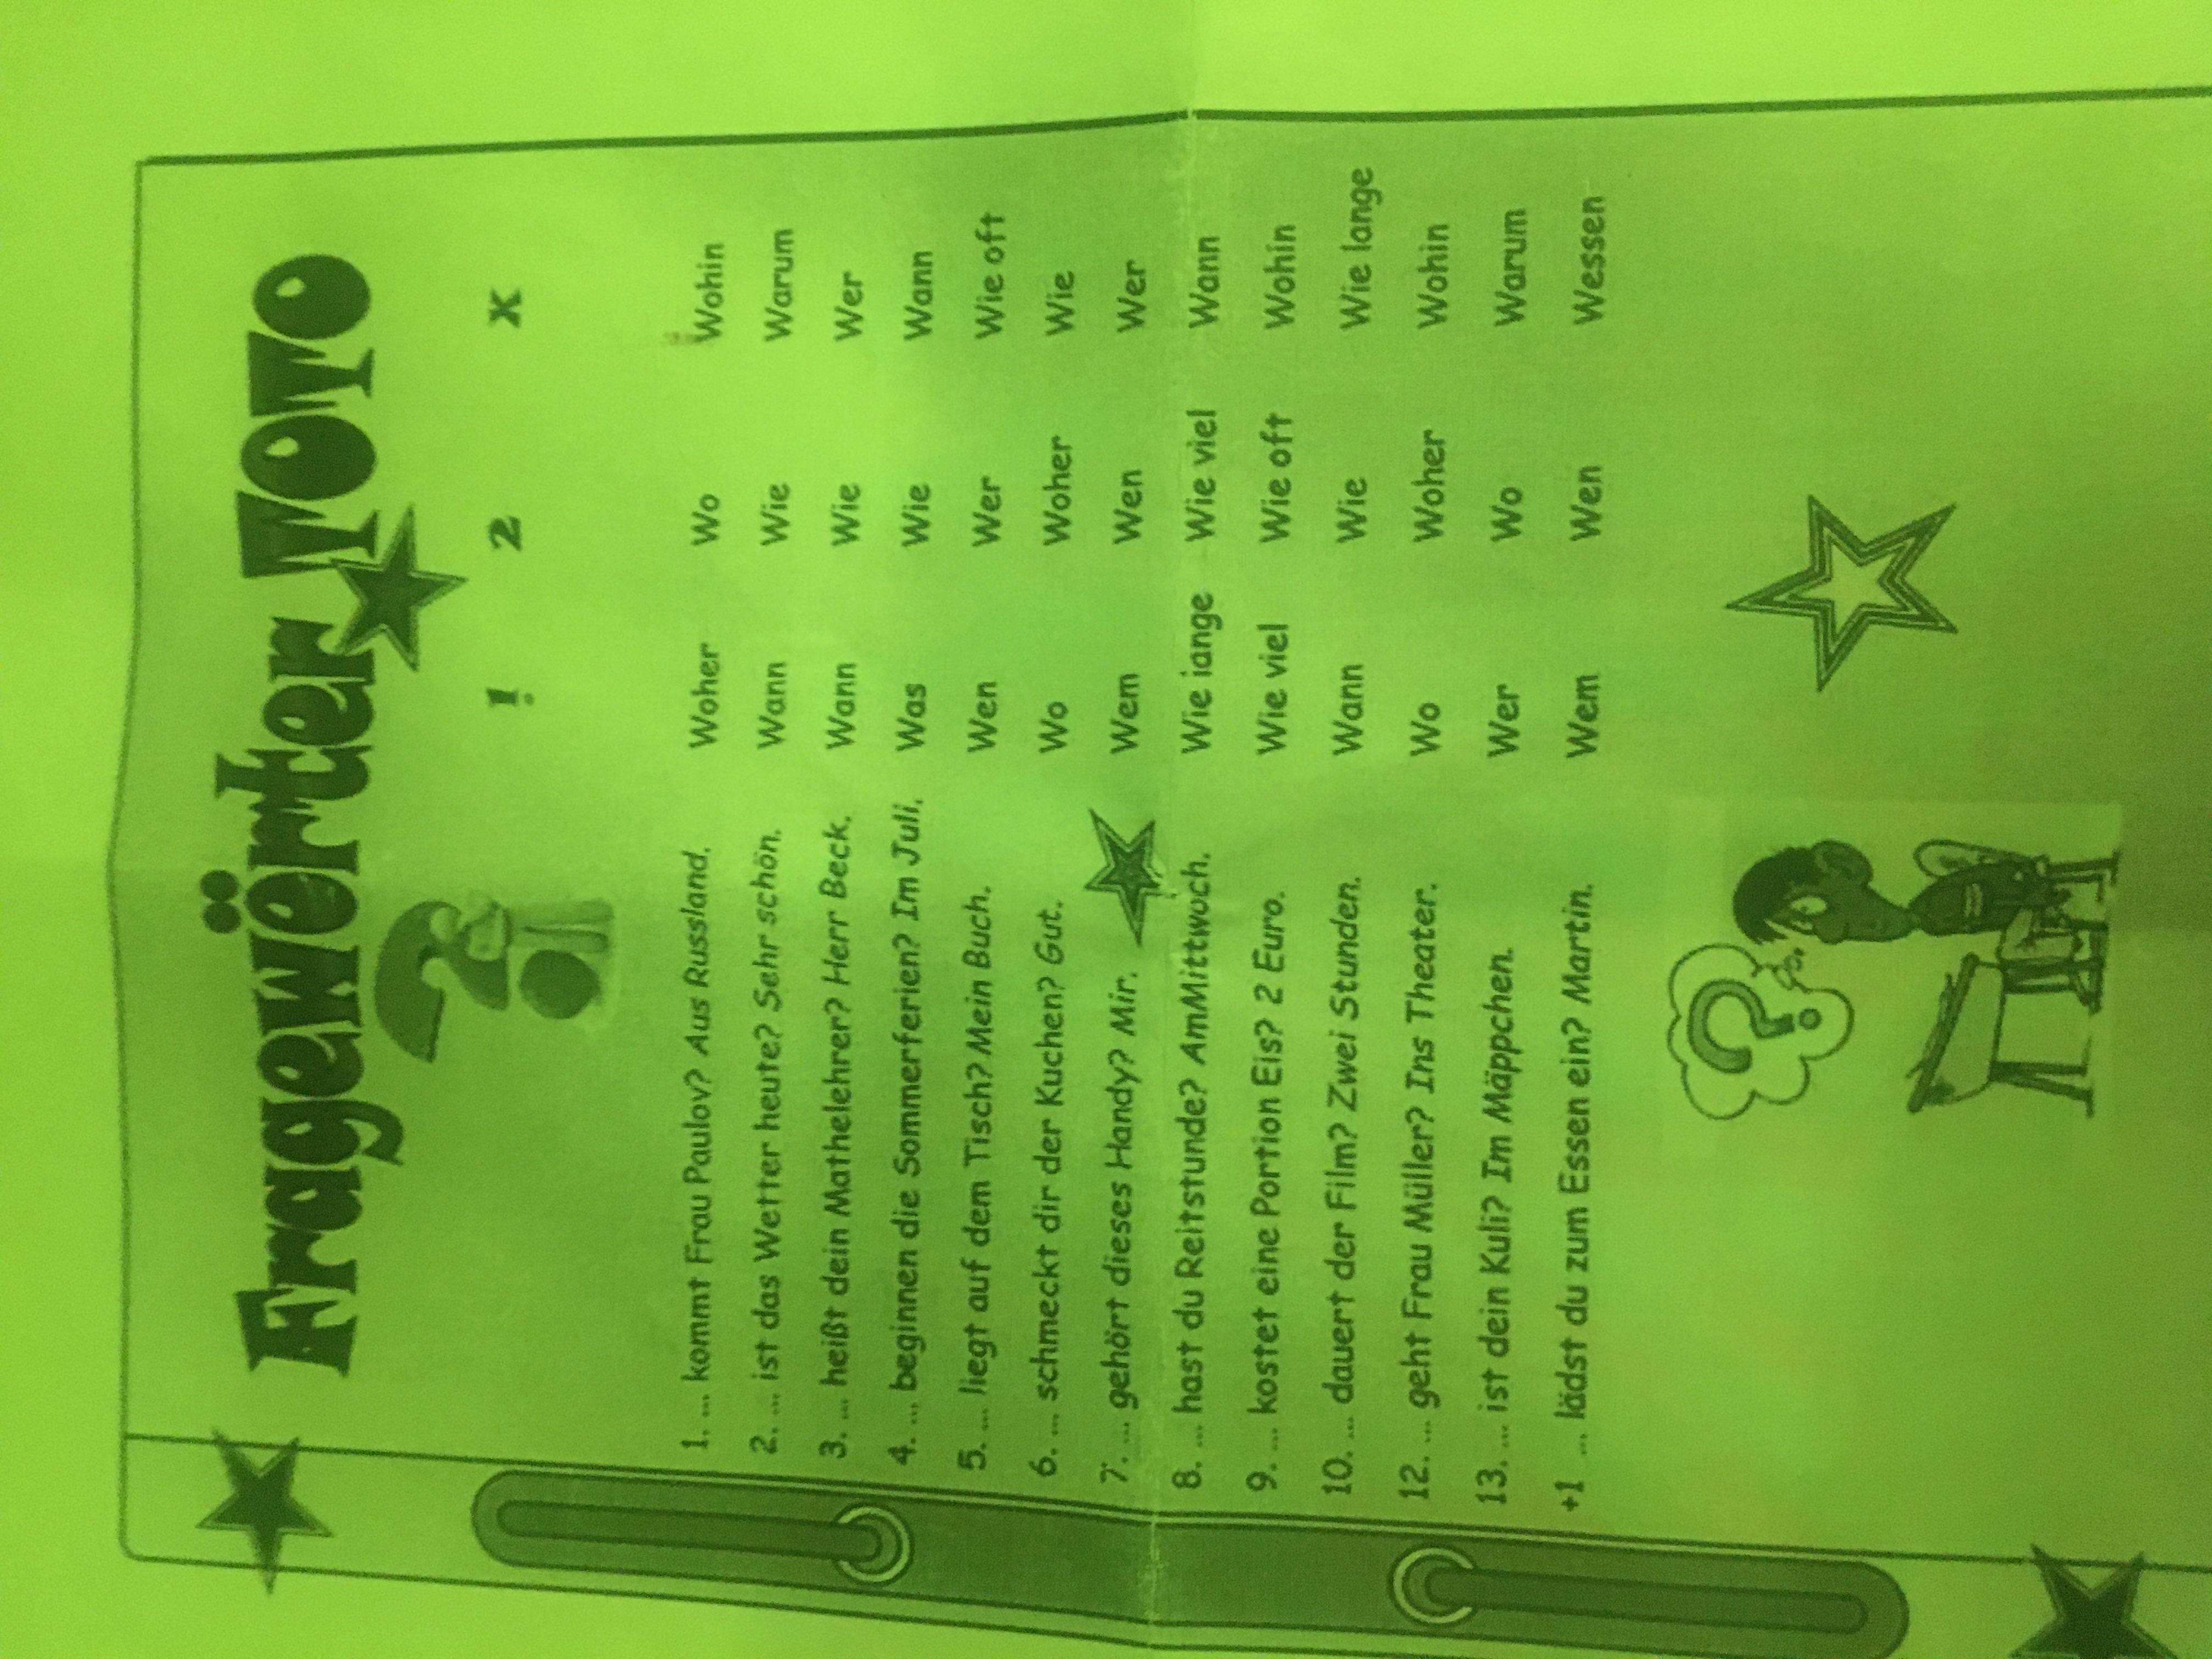 Fragewörter TOTO
1. 2 X
1. ... kommt Frau Paulov? Aus Russland. Woher Wo Wohin
2. ... ist das Wetter heute? Sehr schön. Wann Wie Warum
3. ... heißt dein Mathelehrer? Herr Beck. Wann Wie Wer
4. ... beginnen die Sommerferien? Im Juli. Was Wie Wann
5. ... liegt auf dem Tisch? Mein Buch. Wen Wer Wie oft
6. ... schmeckt dir der Kuchen? Gut. Wo Woher Wie
7. ... gehört dieses Handy? Mir. Wem Wen Wer
8. ... hast du Reitstunde? AmMittwoch. Wie iange Wie viel Wann
9. ... kostet eine Portion Eis? 2 Euro. Wie viel Wie oft Wohin
10. ... dauert der Film? Zwei Stunden. Wann Wie Wie lange
12. ... geht Frau Müller? Ins Theater. Wo Woher Wohin
13. ... ist dein Kuli? Im Mäppchen. Wer Wo Warum
+1 ... lädst du zum Essen ein? Martin. Wem Wen Wessen
?